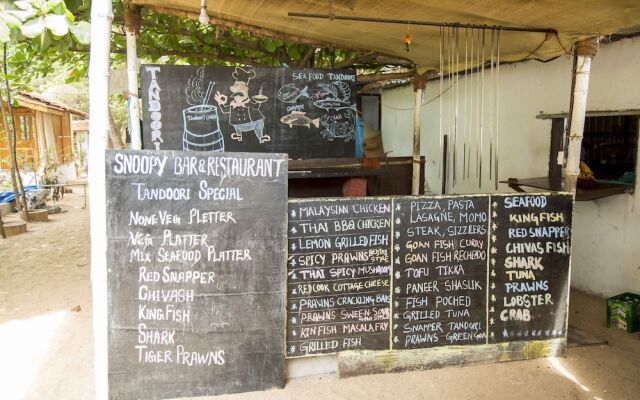 TANDOORI
SEA FOOD TANDOORI
CRAB
SNOOPY BAR & RESTAURANT
TANDOORI SPECIAL
NONE VEG PLETTER
VEG PLATTER
MIX SEAFOOD PLATTER
RED SNAPPER
CHIVASH
KING FISH
SHARK
TIGER PRAWNS
* MALAYSIAN CHICKEN
* THAI BBQ CHICKEN
* LEMON GRILLED FISH
* SPICY PRAWNS
* THAI SPICY MUSHROOM
* RED COOK COTTAGE CHEESE
* PRAWNS CRACKLING
* PRAWNS SWEEN
* KIN FISH MASALA FRY
* GRILLED FISH
* PIZZA, PASTA
LASAGNE, MOMO
* STEAK, SIZZLERS
* GOAN FISH CURRY
* GOAN FISH RECHEDO
* TOFU TIKKA
* PANEER SHASLIK
* FISH POCHED
* GRILLED TUNA
* SNAPPER TANDORI
* PRAWNS GREEN
SEAFOOD
* KING FISH
* RED SNAPPER
* CHIVAS FISH
* SHARK
* TUNA
* PRAWNS
* LOBSTER
* CRAB